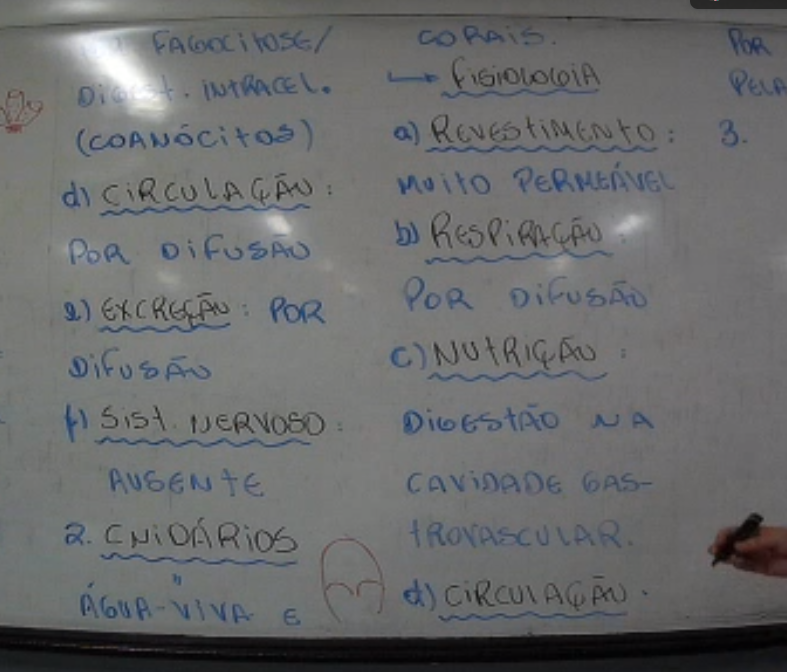 FAGOCITOSE/
DIGEST. INTRACEL.
(COANÓCITOS)
d) CIRCULAÇÃO:
POR DIFUSÃO
e) EXCREÇÃO: POR
DIFUSÃO
f) SIST. NERVOSO:
AUSENTE
2. CNIDÁRIOS
"
ÁGUA-VIVA E
CORAIS.
→ FISIOLOGIA
a) REVESTIMENTO:
MUITO PERMEÁVEL
b) RESPIRAÇÃO:
POR DIFUSÃO
c) NUTRIÇÃO:
DIGESTÃO NA
CAVIDADE GAS-
TROVASCULAR.
d) CIRCULAÇÃO.
POR
PELA
3.